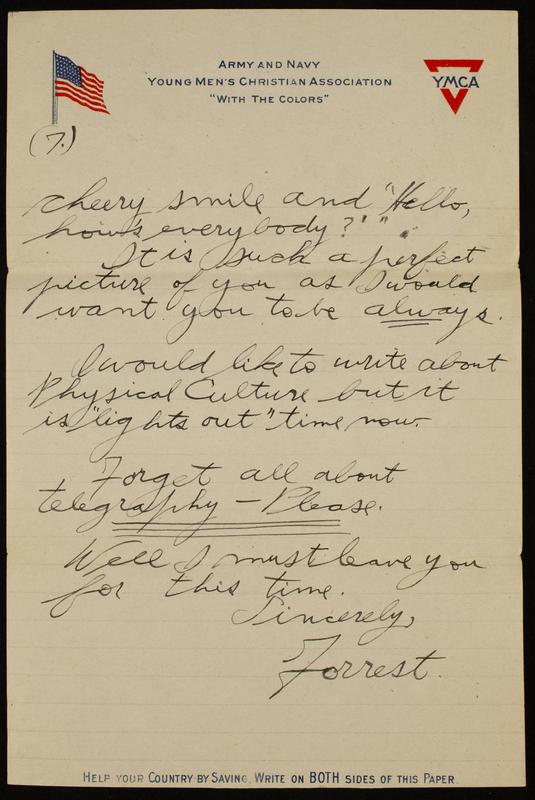 ARMY AND NAVY
YOUNG MEN'S CHRISTIAN ASSOCIATION
"WITH THE COLORS"
YMCA
(7.)
cheery smile and "Hello,
how's everybody?" "
It is such a perfect
picture of you as I would
want you to be always.
I would like to write about
Physical Culture but it
is "lights out" time now.
Forget all about
telegraphy – Please.
Well I must leave you
for this time.
Sincerely,
Forrest.
HELP YOUR COUNTRY BY SAVING. WRITE ON BOTH SIDES OF THIS PAPER.